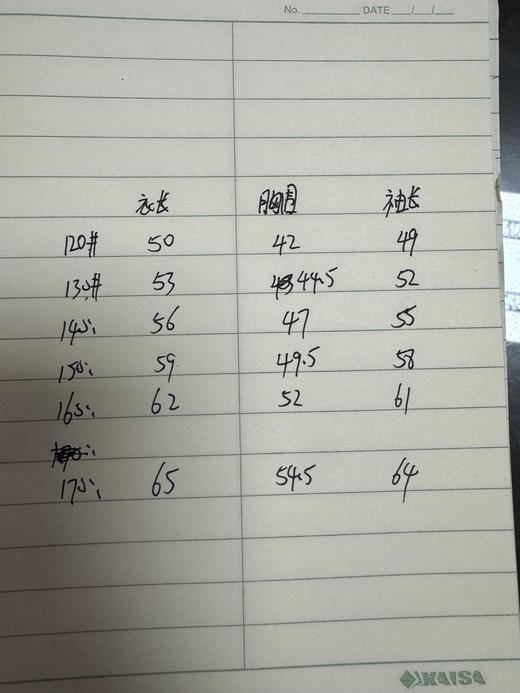 No. ________ DATE ___/___/___
衣长 胸围 袖长
120# 50 42 49
130# 53 44.5 52
140: 56 47 55
150: 59 49.5 58
160: 62 52 61
170: 65 54.5 64
KAISA